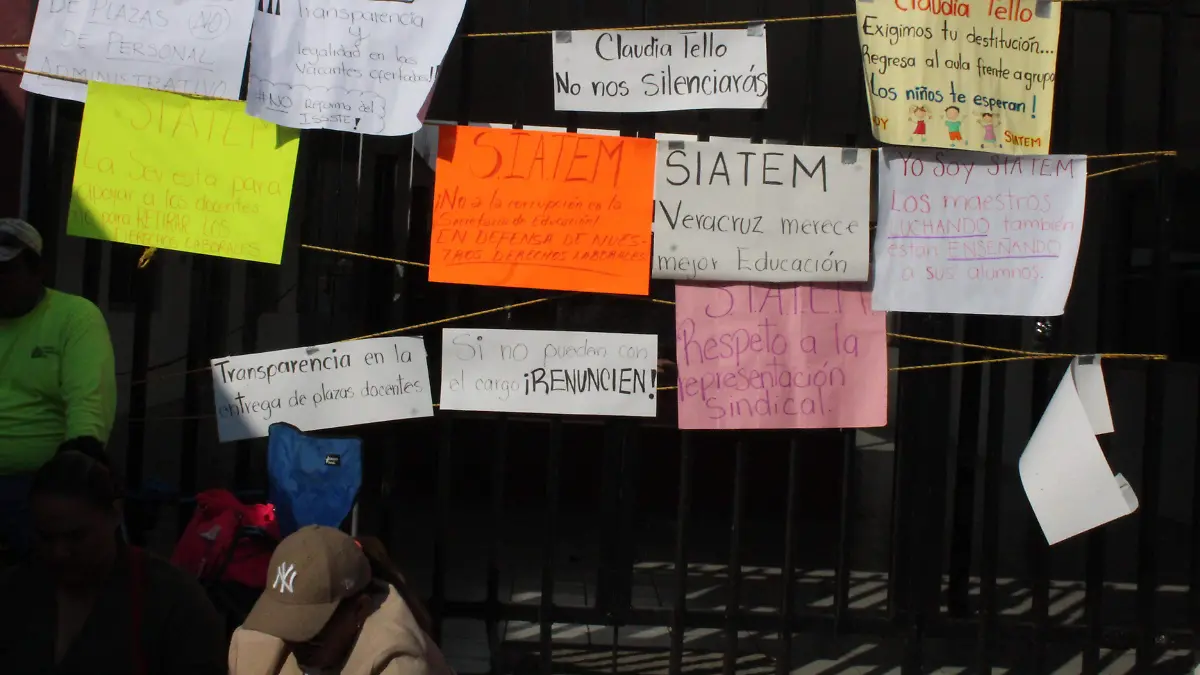 DE PLAZAS (NO)
DE PERSONAL
ADMINISTRATIVO
Transparencia
y
legalidad en las
vacantes ofertadas!!
#NO Reforma del
ISSSTE!
Claudia Tello
No nos Silenciarás
Claudia Tello
Exigimos tu destitución...
Regresa al aula frente a grupo
Los niños te esperan!
SIATEM
SIATEM
La Sev esta para
apoyar a los docentes
No para RETIRAR LOS
DERECHOS LABORALES
SIATEM
¡No a la corrupción en la
Secretaría de Educación!
EN DEFENSA DE NUES-
TROS DERECHOS LABORALES
SIATEM
Veracruz merece
mejor Educación
Yo Soy SIATEM
Los maestros
LUCHANDO también
están ENSEÑANDO
a sus alumnos.
Transparencia en la
entrega de plazas docentes
Si no pueden con
el cargo ¡RENUNCIEN!
SIATEM
Respeto a la
representación
sindical.
NY